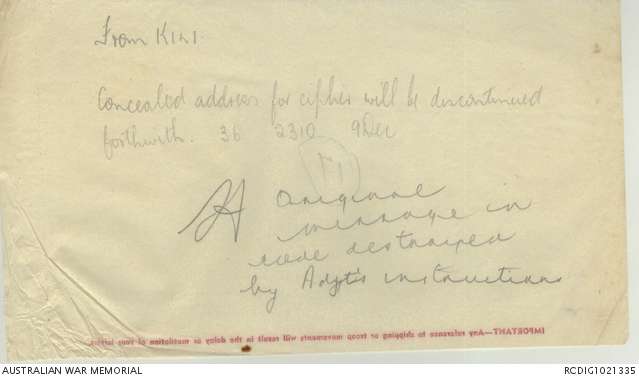 From KIHI.
Concealed address for cipher will be discontinued
forthwith. 36 2310 9 Dec
original
message in
code destroyed
by Adjt's instructions
IMPORTANT—Any reference to shipping or troop movements will result in the delay or mutilation of your letter.
AUSTRALIAN WAR MEMORIAL
RCDIG1021335